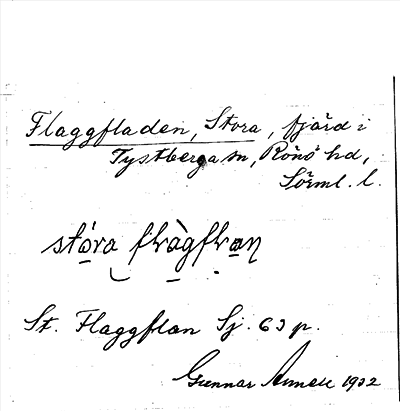 Flaggfladen, Stora, fjärd i
Tystberga sn, Rönö hd,
Sörml. l.
stóra
St. Flaggflan Sj. 63 p.
Gunnar 1932